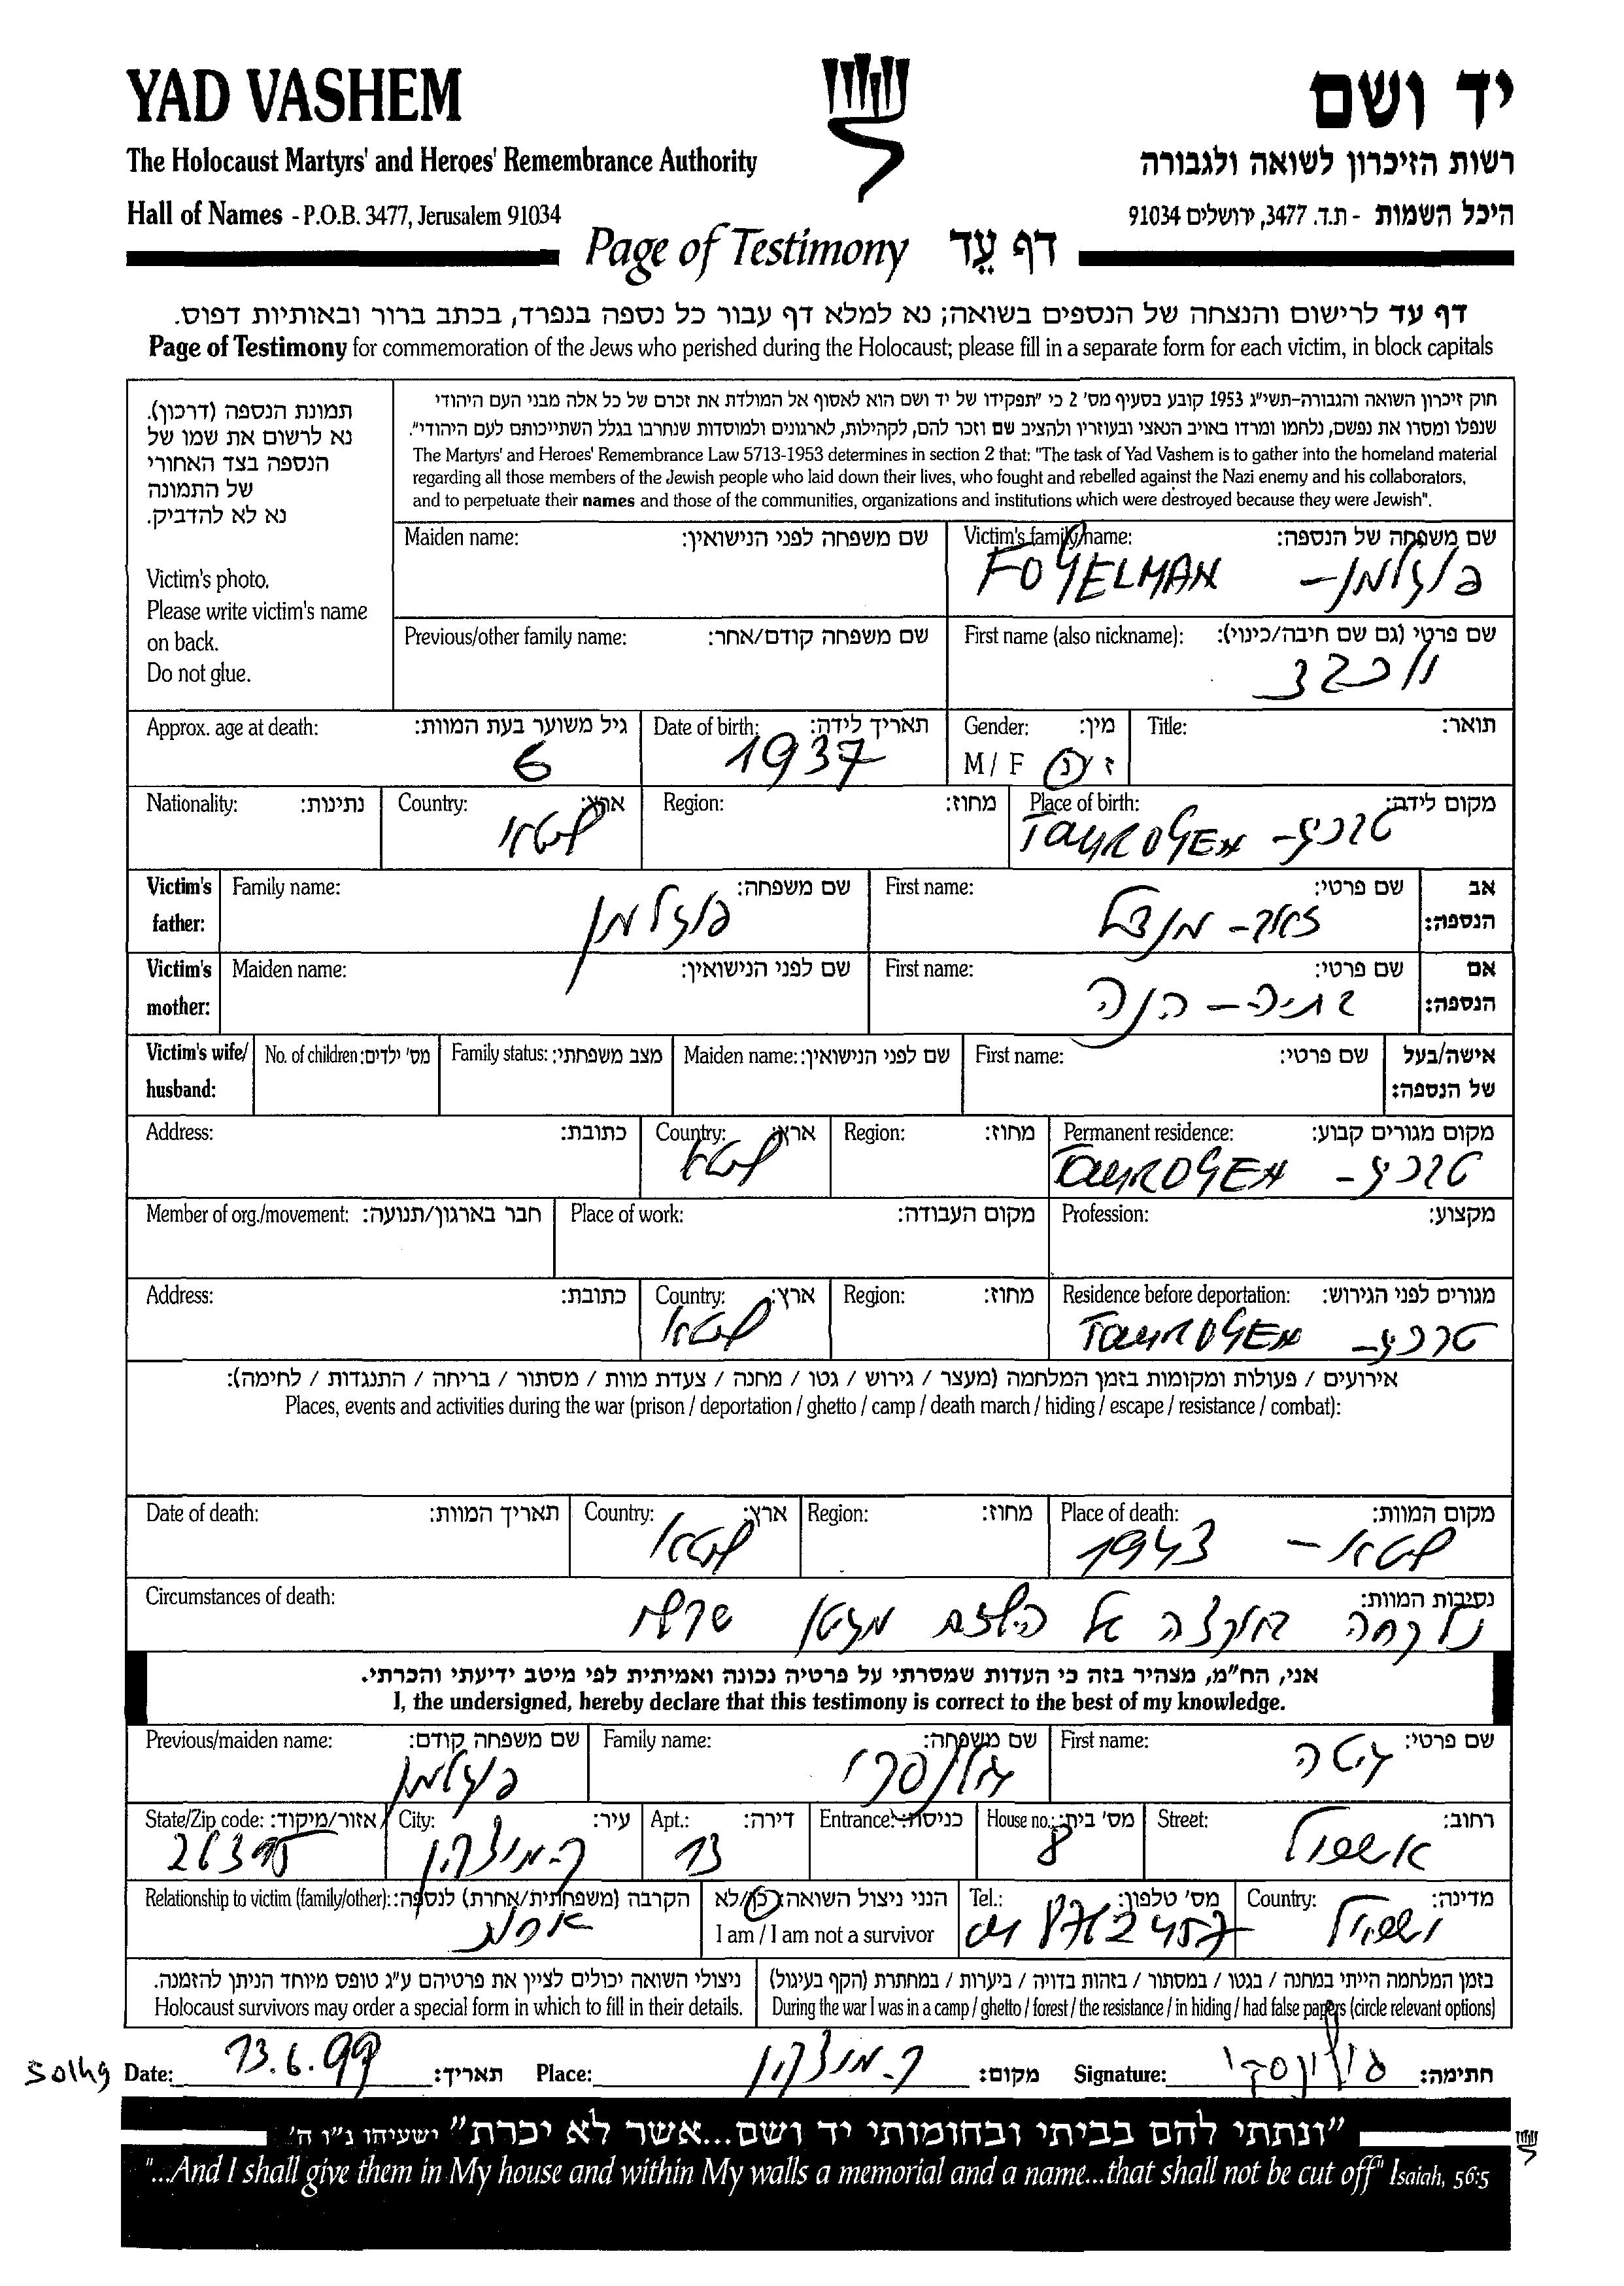 YAD VASHEM
יד ושם
The Holocaust Martyrs' and Heroes' Remembrance Authority
רשות הזיכרון לשואה ולגבורה
Hall of Names - P.O.B. 3477, Jerusalem 91034
היכל השמות - ת.ד. 3477, ירושלים 91034
Page of Testimony דף עֵד
דף עד לרישום והנצחה של הנספים בשואה; נא למלא דף עבור כל נספה בנפרד, בכתב ברור ובאותיות דפוס.
Page of Testimony for commemoration of the Jews who perished during the Holocaust; please fill in a separate form for each victim, in block capitals
תמונת הנספה (דרכון).
נא לרשום את שמו של
הנספה בצד האחורי
של התמונה
נא לא להדביק.
Victim's photo.
Please write victim's name
on back.
Do not glue.
חוק זיכרון השואה והגבורה-תשי"ג 1953 קובע בסעיף מס' 2 כי "תפקידו של יד ושם הוא לאסוף אל המולדת את זכרם של כל אלה מבני העם היהודי
שנפלו ומסרו את נפשם, נלחמו ומרדו באויב הנאצי ובעוזריו ולהציב שם וזכר להם, לקהילות, לארגונים ולמוסדות שנחרבו בגלל השתייכותם לעם היהודי".
The Martyrs' and Heroes' Remembrance Law 5713-1953 determines in section 2 that: "The task of Yad Vashem is to gather into the homeland material
regarding all those members of the Jewish people who laid down their lives, who fought and rebelled against the Nazi enemy and his collaborators,
and to perpetuate their names and those of the communities, organizations and institutions which were destroyed because they were Jewish".
Maiden name: שם משפחה לפני הנישואין:
Victim's family name: שם משפחה של הנספה:
FOGELMAN פוגלמן-
Previous/other family name: שם משפחה קודם/אחר:
First name (also nickname): שם פרטי (גם שם חיבה/כינוי):
Approx. age at death: גיל משוער בעת המוות:
6
Date of birth: תאריך לידה:
1937
Gender: מין:
M / F ז / נ
Title: תואר:
Nationality: נתינות:
Country: ארץ:
ליטא
Region: מחוז:
Place of birth: מקום לידה:
TAUROGEN -
Victim's father: Family name: שם משפחה:
פוגלמן
First name: שם פרטי:
מנדל
אב הנספה:
Victim's mother: Maiden name: שם לפני הנישואין:
First name: שם פרטי:
בתיה - חנה
אם הנספה:
Victim's wife/ husband: No. of children: מס' ילדים: Family status: מצב משפחתי: Maiden name: שם לפני הנישואין: First name: שם פרטי:
אישה/בעל של הנספה:
Address: כתובת: Country: ארץ: Region: מחוז: Permanent residence: מקום מגורים קבוע:
ליטא TAUROGEN -
Member of org./movement: חבר בארגון/תנועה: Place of work: מקום העבודה: Profession: מקצוע:
Address: כתובת: Country: ארץ: Region: מחוז: Residence before deportation: מגורים לפני הגירוש:
ליטא TAUROGEN
אירועים / פעולות ומקומות בזמן המלחמה (מעצר / גירוש / גטו / מחנה / צעדת מוות / מסתור / בריחה / התנגדות / לחימה):
Places, events and activities during the war (prison / deportation / ghetto / camp / death march / hiding / escape / resistance / combat):
Date of death: תאריך המוות: Country: ארץ: Region: מחוז: Place of death: מקום המוות:
ליטא ליטא - 1943
Circumstances of death: נסיבות המוות:
נלקחה באקציה של הילדים מגטו
אני, הח"מ, מצהיר בזה כי העדות שמסרתי על פרטיה נכונה ואמיתית לפי מיטב ידיעתי והכרתי.
I, the undersigned, hereby declare that this testimony is correct to the best of my knowledge.
Previous/maiden name: שם משפחה קודם: Family name: שם משפחה: First name: שם פרטי:
פוגלמן גיטה
State/Zip code: אזור/מיקוד: City: עיר: Apt.: דירה: Entrance: כניסה: House no.: מס' בית: Street: רחוב:
ק. מוצקין 13 8 אשכול
Relationship to victim (family/other): הקרבה (משפחתית/אחרת) לנספה:
אחות
הנני ניצול השואה: כן/לא
I am / I am not a survivor
Tel.: מס' טלפון:
04 8712457
Country: מדינה:
ישראל
ניצולי השואה יכולים לציין את פרטיהם ע"ג טופס מיוחד הניתן להזמנה.
Holocaust survivors may order a special form in which to fill in their details.
בזמן המלחמה הייתי במחנה / בגטו / במסתור / בזהות בדויה / ביערות / במחתרת (הקף בעיגול)
During the war I was in a camp / ghetto / forest / the resistance / in hiding / had false papers (circle relevant options)
Date: 13.6.99 תאריך: Place: ק. מוצקין מקום: Signature: חתימה:
"ונתתי להם בביתי ובחומותי יד ושם...אשר לא יכרת" ישעיהו נ"ו ה'
"...And I shall give them in My house and within My walls a memorial and a name...that shall not be cut off" Isaiah, 56:5